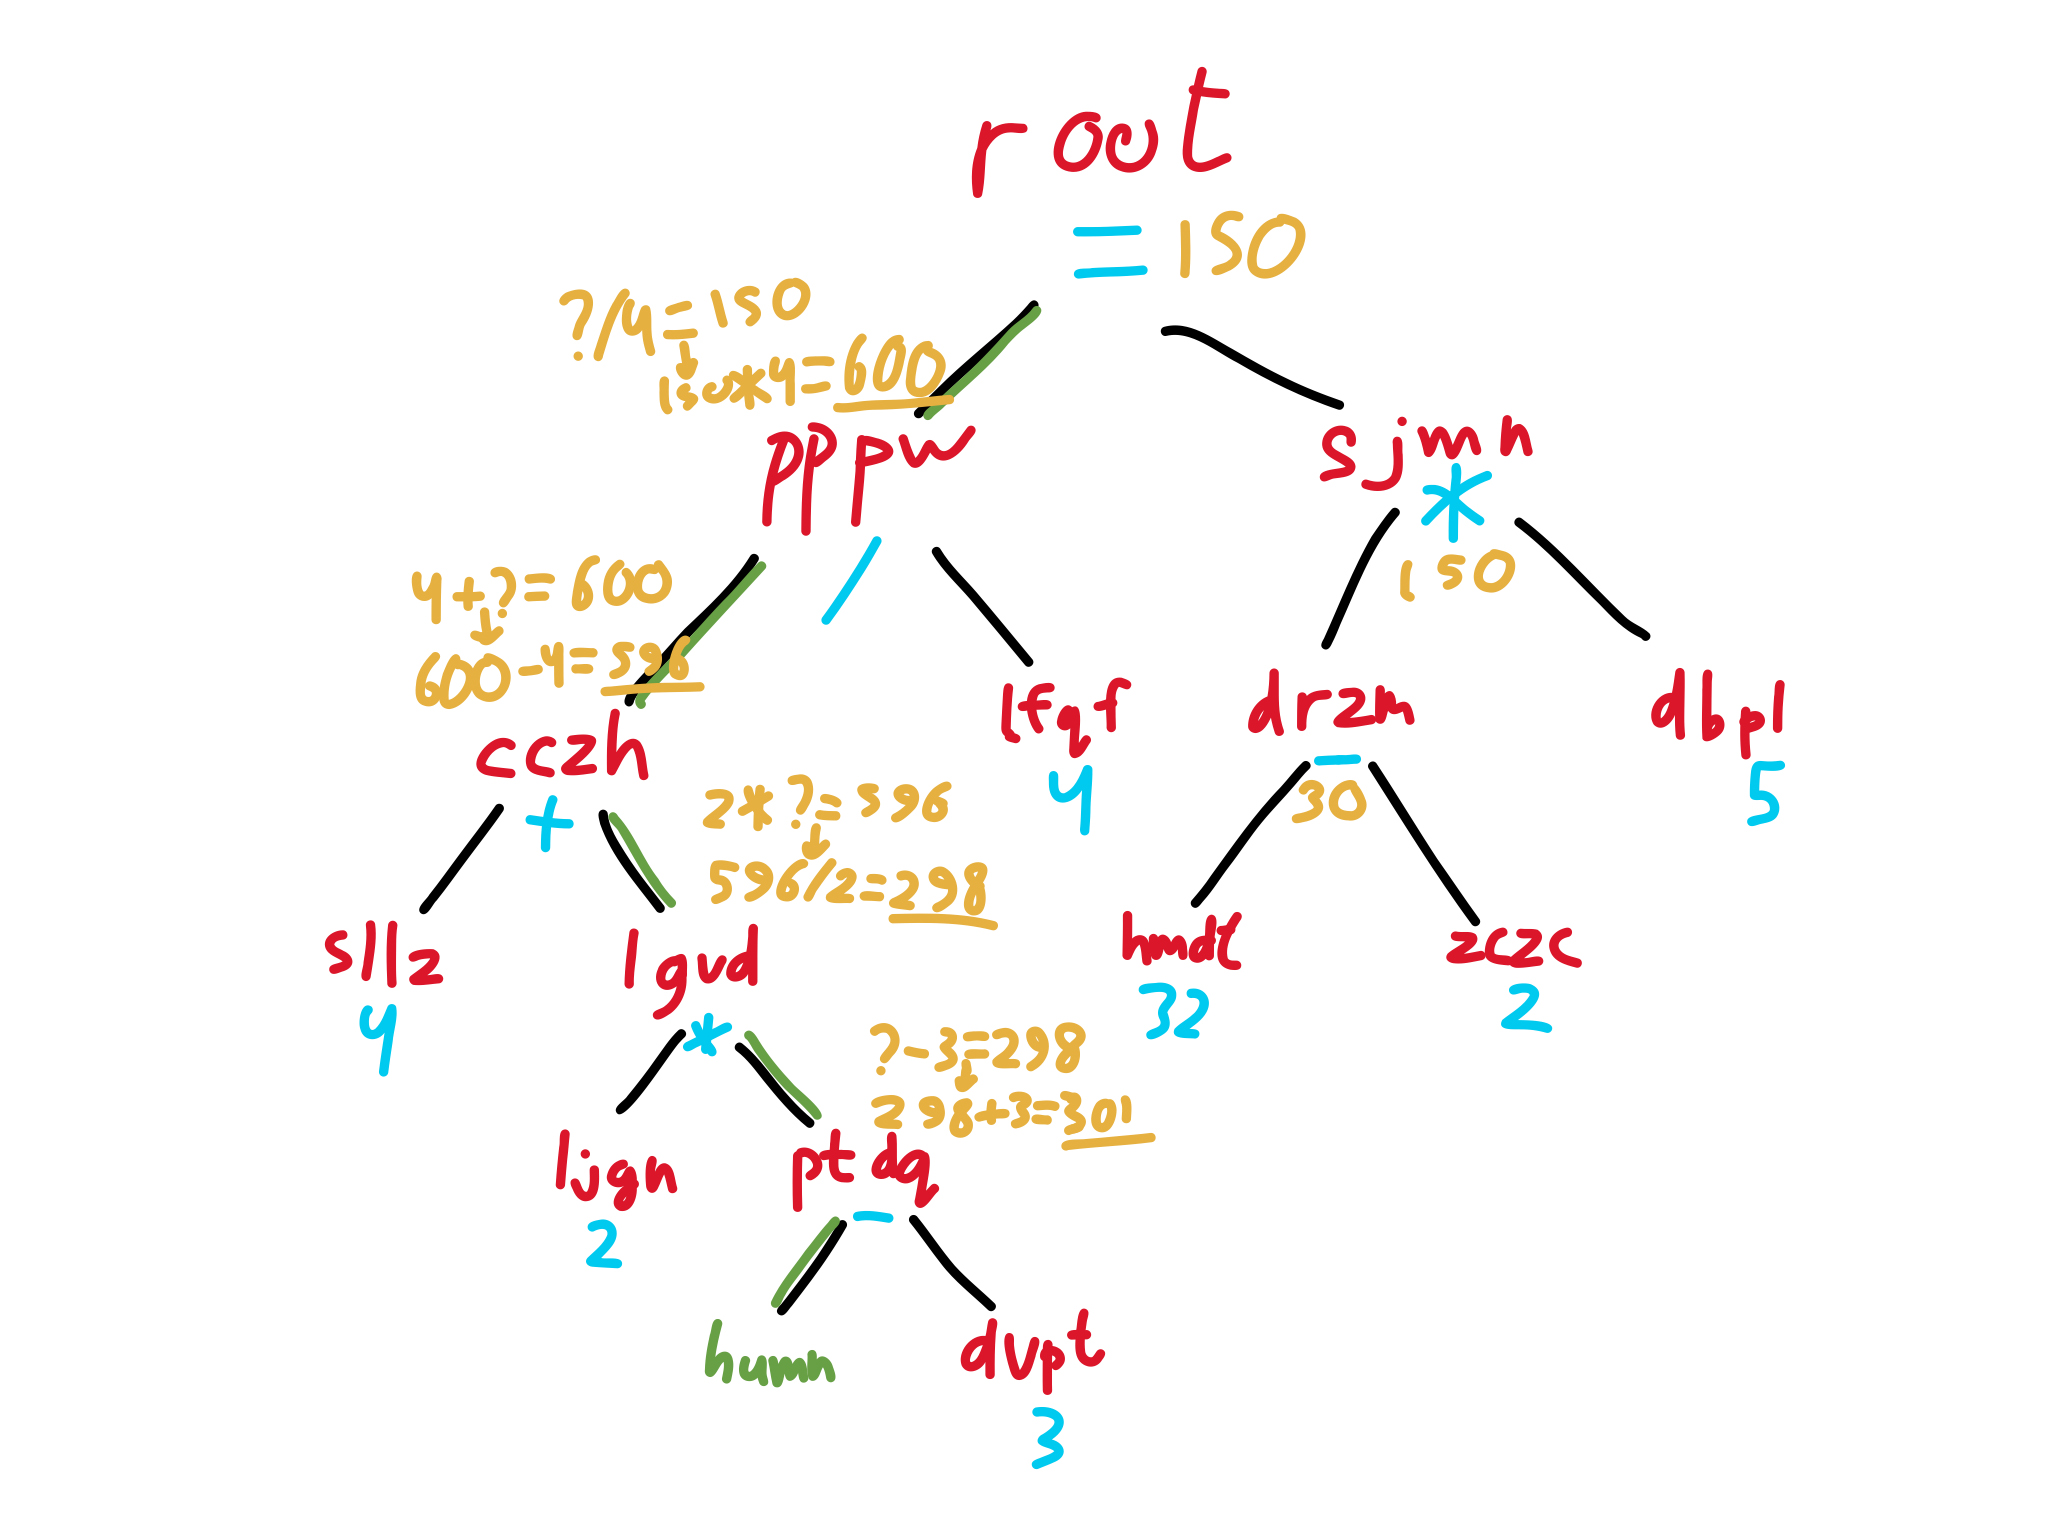 root
= 150
?/4 = 150
150*4 = 600
pppw
/
sjmn
*
150
4+? = 600
600-4 = 596
cczh
+
lfqf
4
drzm
-
30
dbpl
5
2*? = 596
596/2 = 298
sllz
4
lgvd
*
hmdt
32
zczc
2
?-3=298
298+3=301
ljgn
2
ptdq
-
humn
dvpt
3